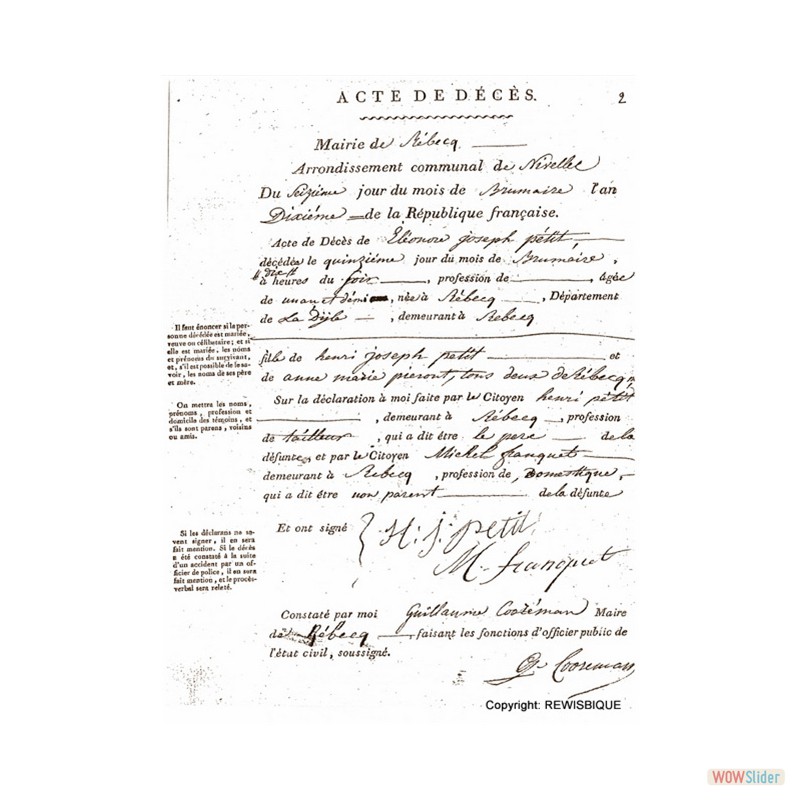 ACTE DE DÉCÈS. 2
Mairie de Rébecq
Arrondissement communal de Nivelles
Du Seizième jour du mois de Brumaire l'an
Dixiéme de la République française.
Acte de Décès de Eléonore joseph pétit,
décédée le quinziéme jour du mois de Brumaire,
à heures du soir, profession de, âgée
de un an et démi, née à Rébecq, Département
de La Dÿle, demeurant à Rebecq
Il faut énoncer si la personne décédée est mariée, veuve ou célibataire; et si elle est mariée, les noms et prénoms du survivant, et, s'il est possible de le savoir, les noms de ses père et mère.
fille de henri joseph petit et
de anne marie pieront, tous deux de Rébecq
Sur la déclaration à moi faite par le Citoyen henri pétit
On mettra les noms, prénoms, profession et domicile des témoins, et s'ils sont parens, voisins ou amis.
, demeurant à Rébecq, profession
de tailleur, qui a dit être le pere de la
défunte, et par le Citoyen Michel franquet
demeurant à Rebecq, profession de Domestique,
qui a dit être non parent de la défunte
Si les déclarans ne savent signer, il en sera fait mention. Si le décès a été constaté à la suite d'un accident par un officier de police, il en sera fait mention, et le procès-verbal sera relaté.
Et ont signé H. j. petit
M. franquet
Constaté par moi Guillaume Cooréman Maire
de Rébecq, faisant les fonctions d'officier public de
l'état civil, soussigné.
G. Cooreman
Copyright: REWISBIQUE
WOWSlider